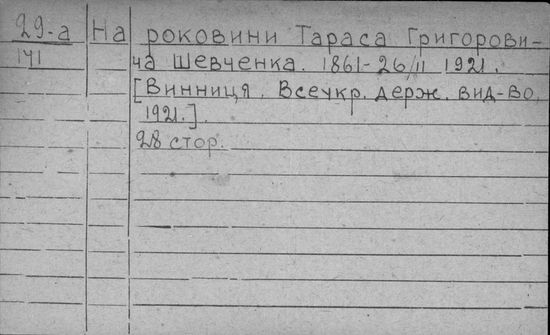 29-а На роковини Тараса Григорови-
141 ча Шевченка. 1861-26/II 1921.
[Винниця. Всеукр. держ. вид-во,
1921.].
28 стор.